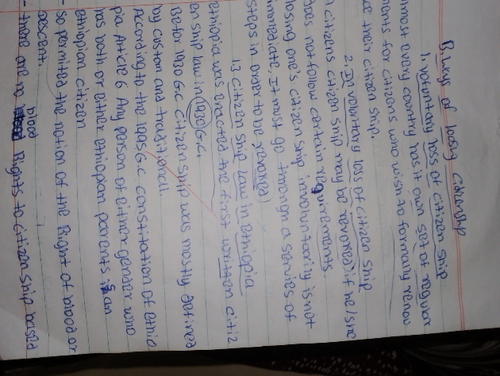 B, ways of loosing citizenship
1. voluntary loss of citizen ship
almost every country has it own set of regular
ments for citizens who wish to formally renou
ce their citizen ship.
2. Involuntary loss of citizen ship
A citizens citizen ship may be revoked if he/she
does not follow certain requirements
loosing one's citizen ship involuntarily is not
immediate. It must go through a servies of
steps in order to be revoked)
1.3 citizen ship law in ethiopia
ethiopia was enacted the first written citiz
en ship law in 1930 G.C.
Befor 1930 G.C citizen ship was mostly defined
by custom and traditionall.
according to the 1995 G.C constitution of ethio
pia Article 6 Any person of either gender who
has both or either ethiopian parents is an
ethiopian citizen
- so permited the notion of the Right of blood or
descent.
- there are no blood Rights to citizen ship based